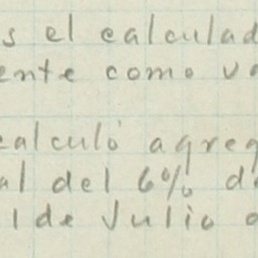 s el calculad
ente como va
calculó agreg
al del 6% d
1 de Julio d